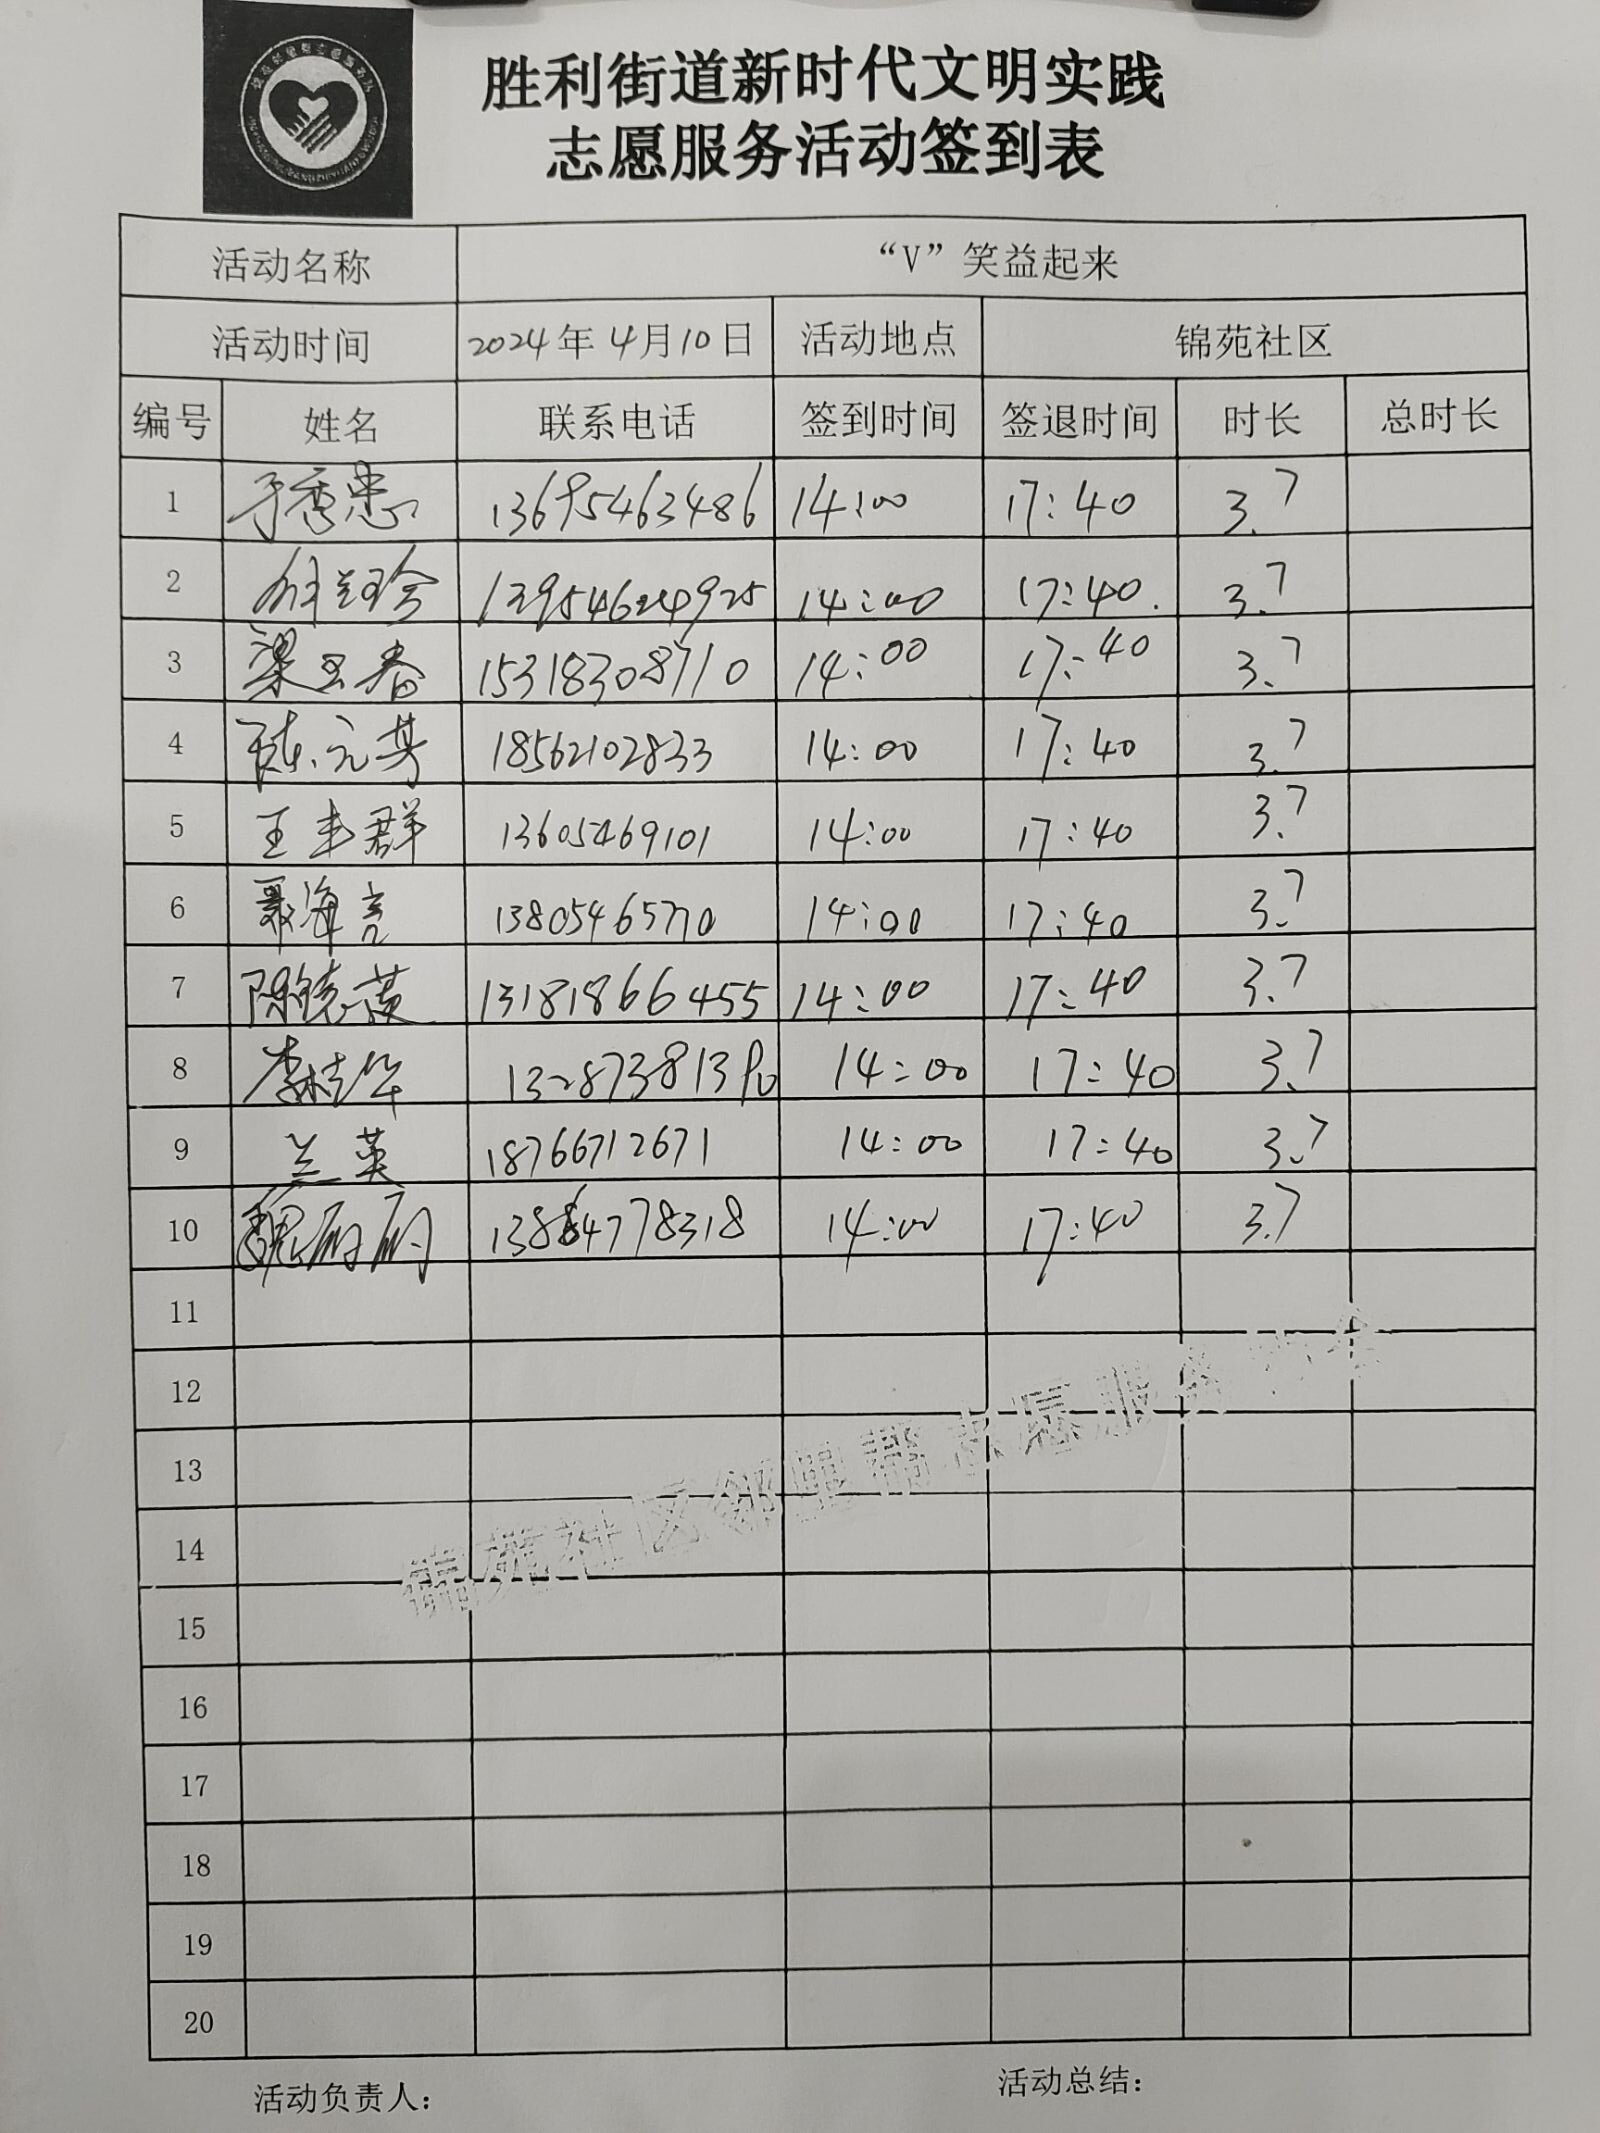 胜利街道新时代文明实践
志愿服务活动签到表
活动名称 “V”笑益起来
活动时间 2024年4月10日 活动地点 锦苑社区
编号 姓名 联系电话 签到时间 签退时间 时长 总时长
1 于秀忠 13695463486 14:00 17:40 3.7
2 13954624925 14:00 17:40. 3.7
3 梁玉春 15318308710 14:00 17:40 3.7
4 陈元英 18562102833 14:00 17:40 3.7
5 王丰群 13605469101 14:00 17:40 3.7
6 聂海亮 13805465770 14:00 17:40 3.7
7 陈镜英 13181866455 14:00 17:40 3.7
8 李桂华 14:00 17:40 3.7
9 兰英 18766712671 14:00 17:40 3.7
10 魏丽丽 14:00 17:40 3.7
11
12
13
14
锦苑社区邻里帮志愿服务协会
15
16
17
18
19
20
活动负责人： 活动总结：